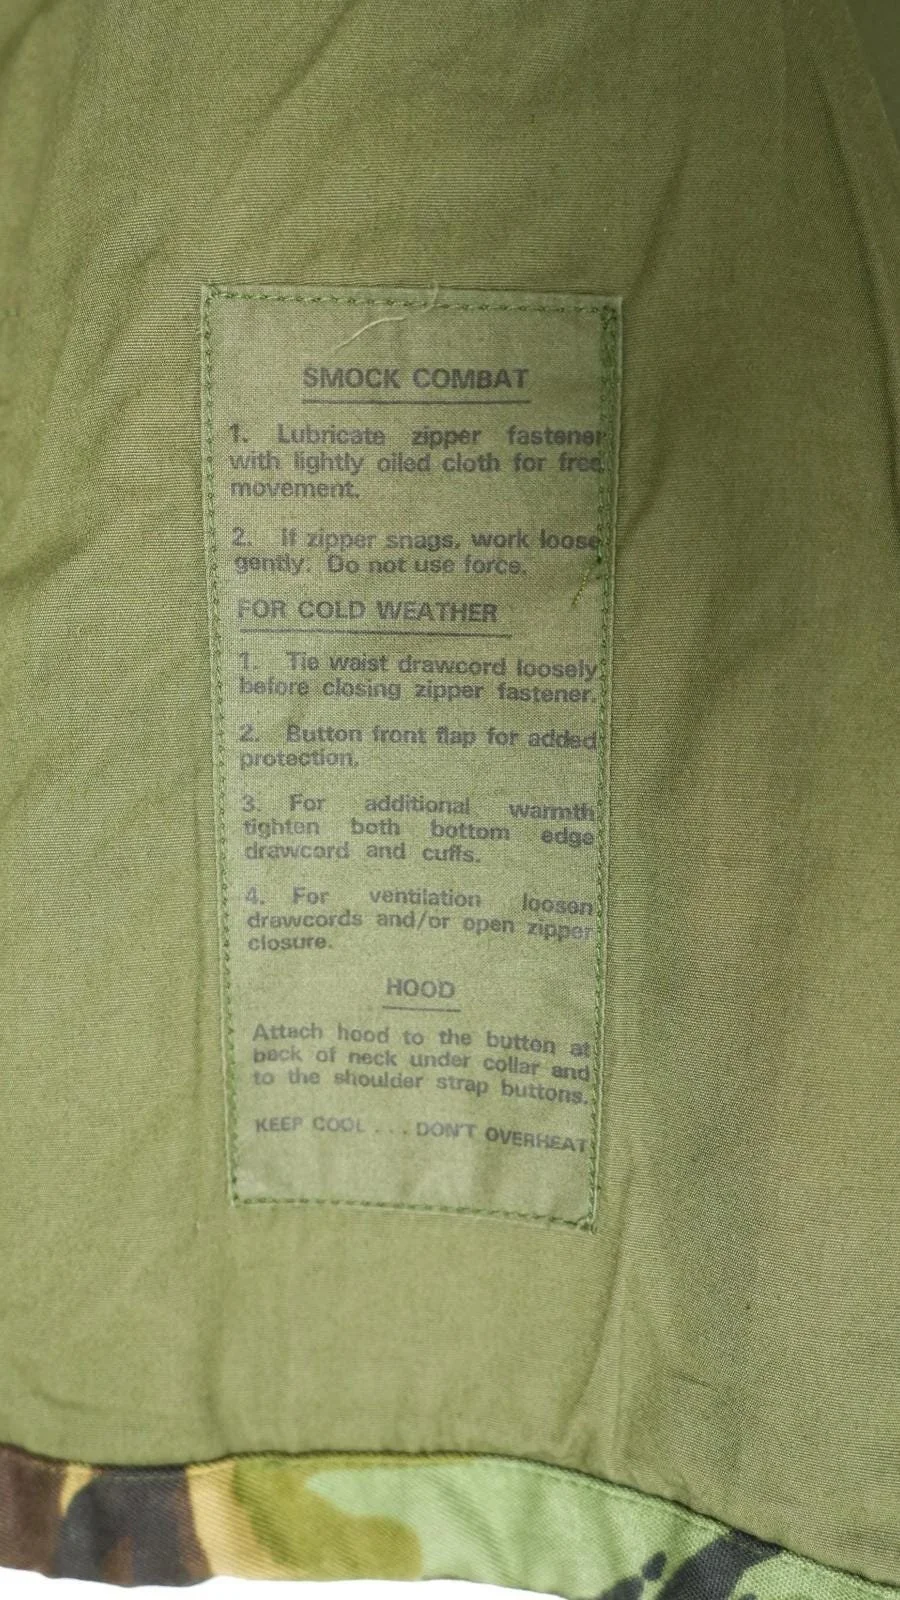 SMOCK COMBAT
1. Lubricate zipper fastener
with lightly oiled cloth for free
movement.
2. If zipper snags, work loose
gently. Do not use force.
FOR COLD WEATHER
1. Tie waist drawcord loosely
before closing zipper fastener.
2. Button front flap for added
protection.
3. For additional warmth
tighten both bottom edge
drawcord and cuffs.
4. For ventilation loosen
drawcords and/or open zipper
closure.
HOOD
Attach hood to the button at
back of neck under collar and
to the shoulder strap buttons.
KEEP COOL . . . DON'T OVERHEAT